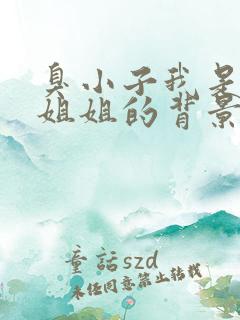 臭小子我是
姐姐的背景
童話szd
未经同意禁止转载